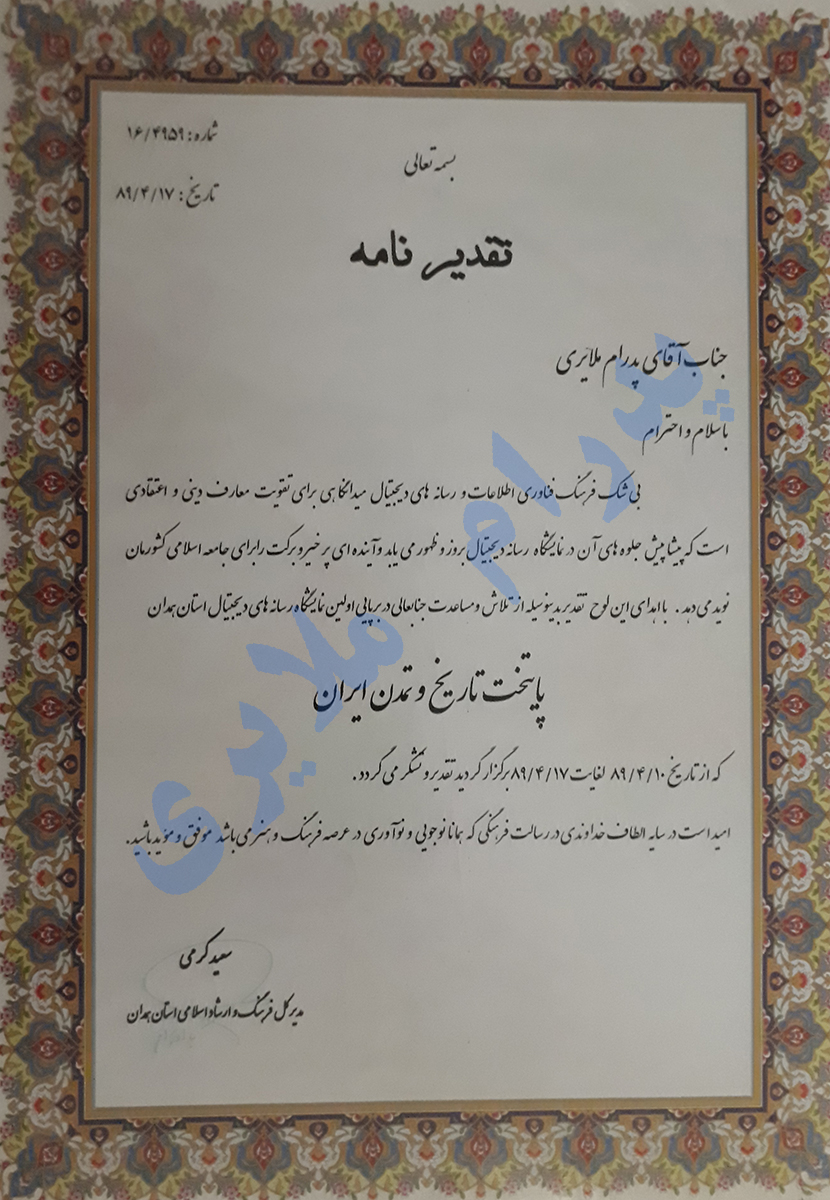 شماره: ۱۶/۴۹۵۹
بسمه تعالی
تاریخ: ۸۹/۴/۱۷
تقدیر نامه
جناب آقای پدرام ملایری
با سلام و احترام
بی شک فرهنگ فناوری اطلاعات و رسانه های دیجیتال میدانگاهی برای تقویت معارف دینی و اعتقادی
است که پیشاپیش جلوه های آن در نمایشگاه رسانه دیجیتال بروز و ظهور می یابد و آینده ای پر خیر و برکت را برای جامعه اسلامی کشورمان
نوید می دهد. با اهدای این لوح تقدیر بدینوسیله از تلاش و مساعدت جنابعالی در برپایی اولین نمایشگاه رسانه های دیجیتال استان همدان
پایتخت تاریخ و تمدن ایران
که از تاریخ ۸۹/۴/۱۰ لغایت ۸۹/۴/۱۷ برگزار گردید تقدیر و تشکر می گردد.
امید است در سایه الطاف خداوندی در رسالت فرهنگی که همانا نوجویی و نوآوری در عرصه فرهنگ و هنر می باشد موفق و مؤید باشید.
سعید کرمی
مدیر کل فرهنگ و ارشاد اسلامی استان همدان
پدرام ملایری